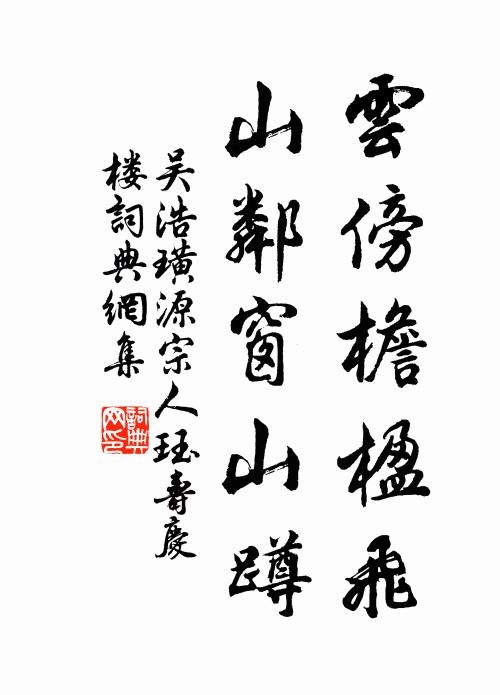 雲傍檐楹飛
山鄰窗山蹲
吴浩璜源宗人珏壽慶
楼詞典網集
詞典網印